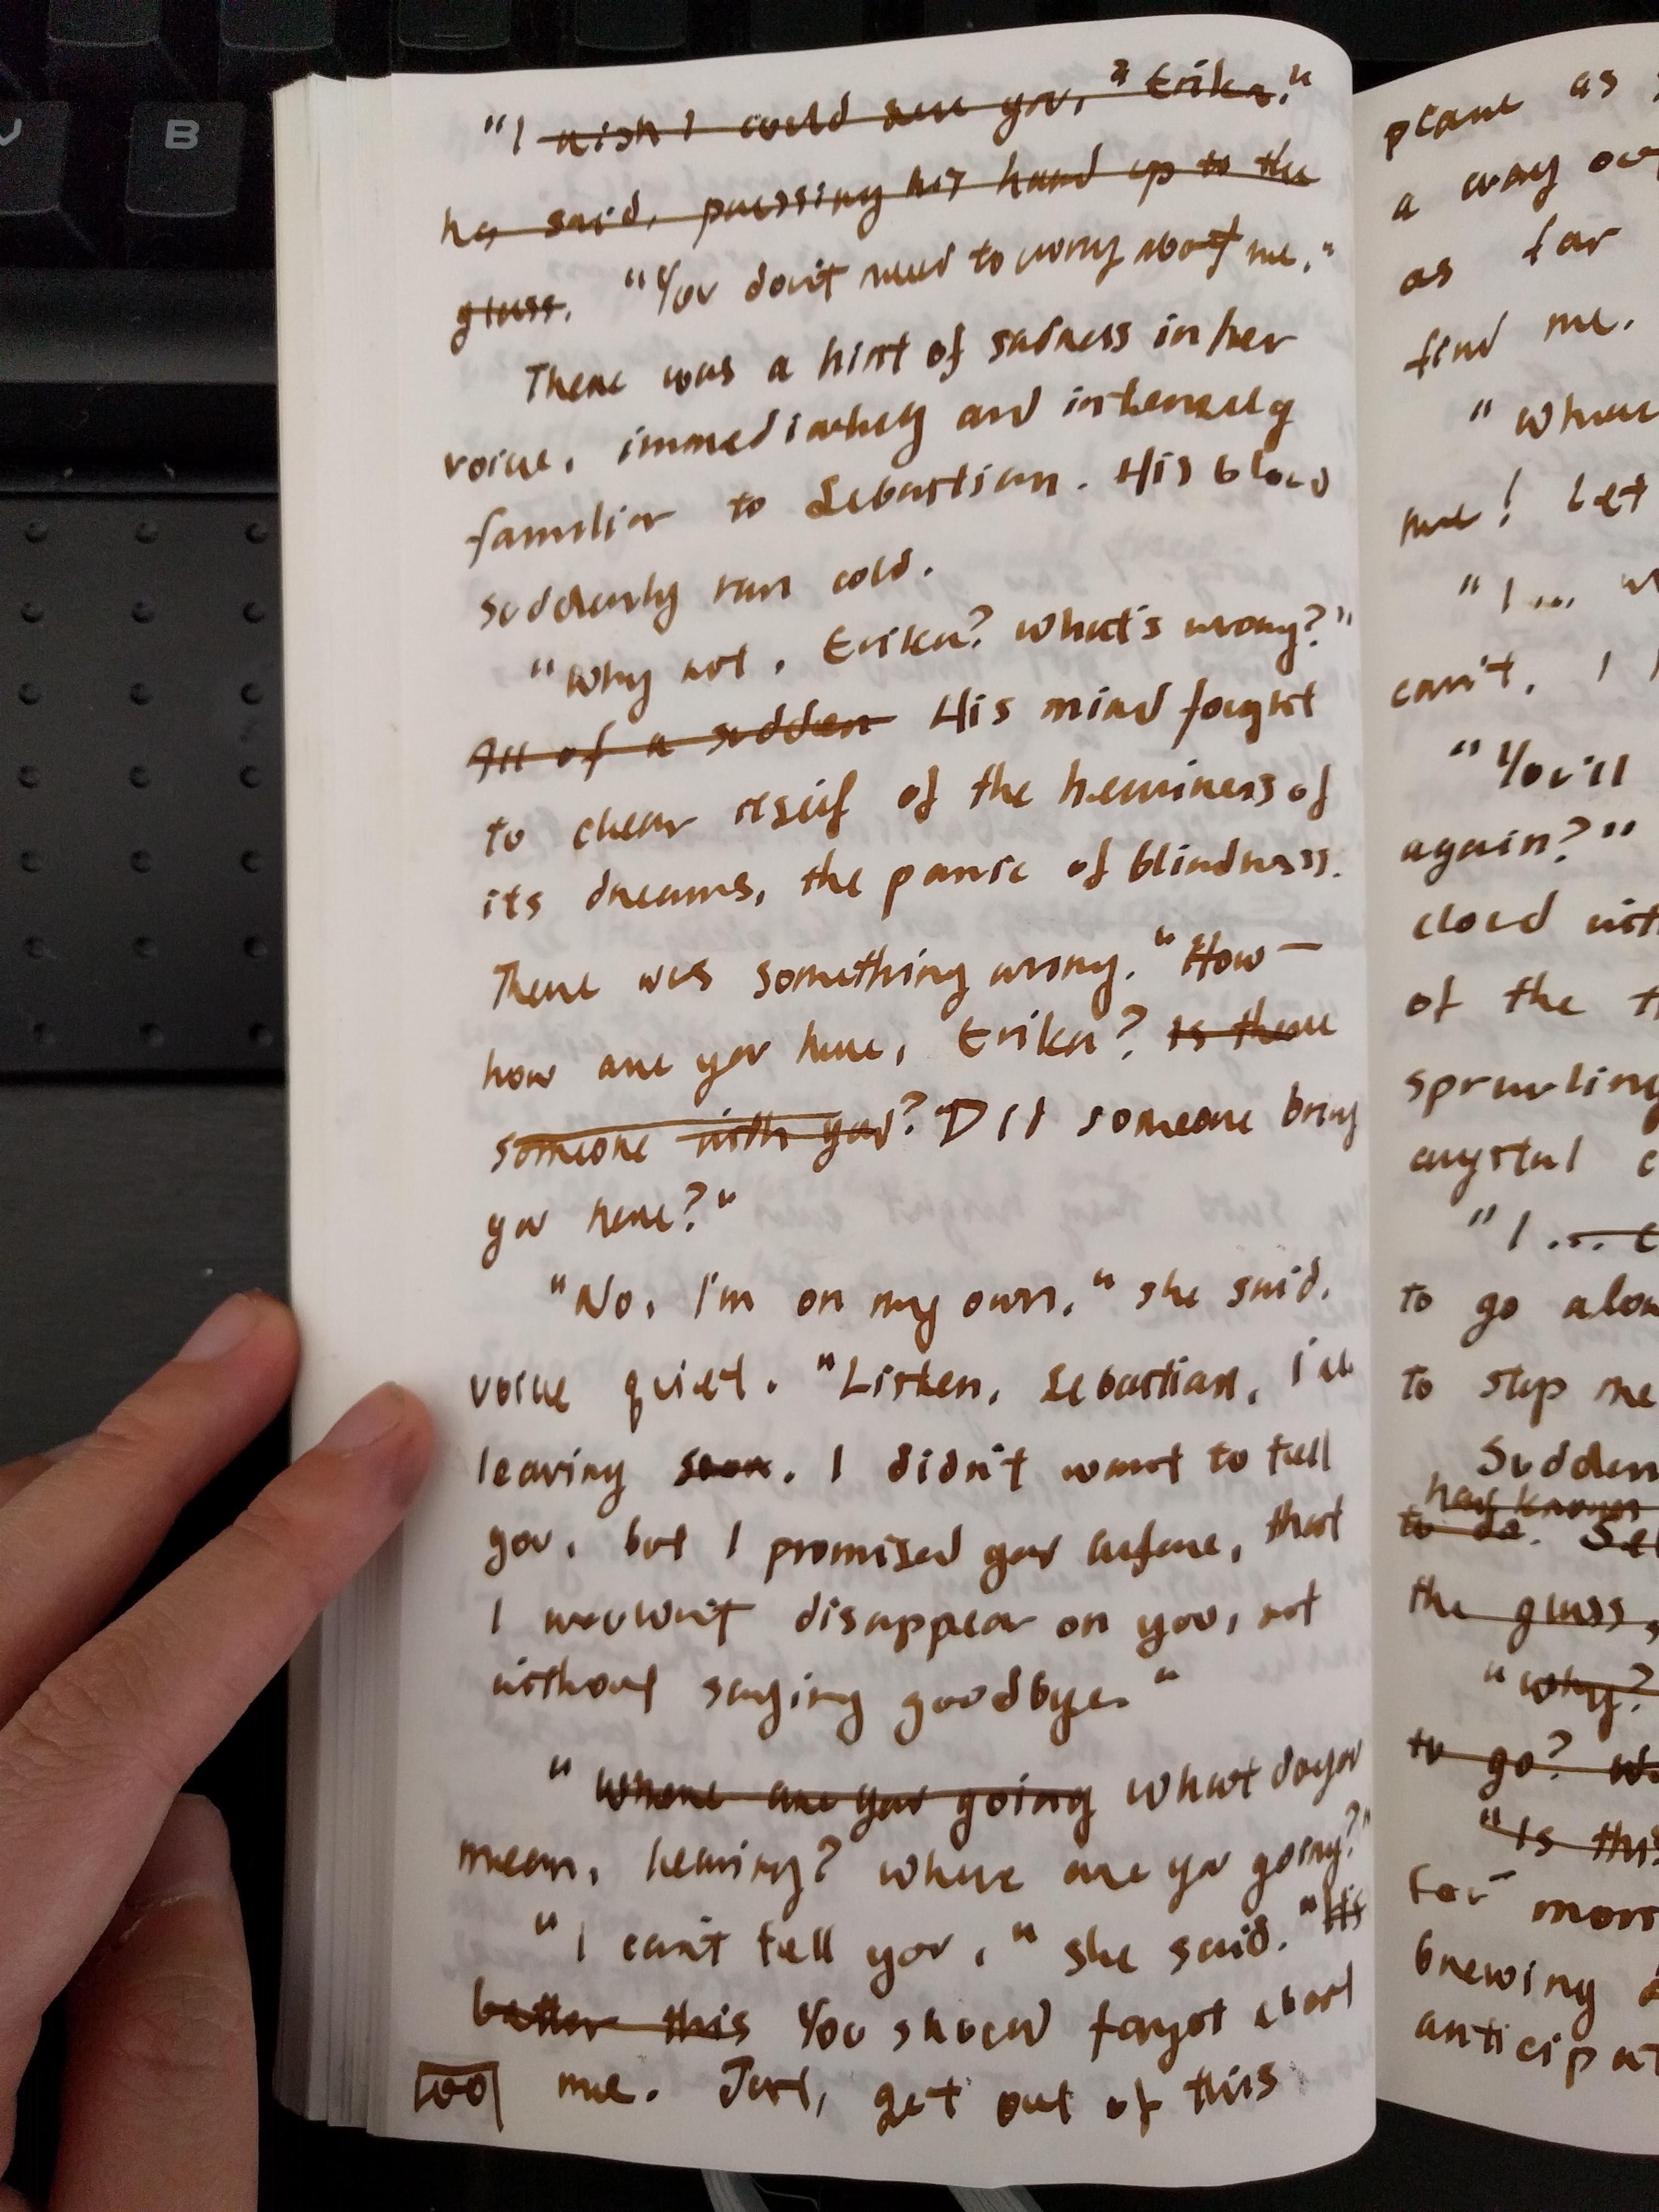 B
"I wish I could see you, "Erika."
he said, pressing his hand up to the
glass. "You don't need to worry about me."
There was a hint of sadness in her
voice, immediately and intensely
familiar to Sebastian. His blood
suddenly ran cold.
"Why not, Erika? What's wrong?"
All of a sudden His mind fought
to clear itself of the heaviness of
its dreams, the panic of blindness.
There was something wrong. "How—
how are you here, Erika? Is there
someone with you? Did someone bring
you here?"
"No, I'm on my own," she said.
voice quiet. "Listen, Sebastian, I'm
leaving soon. I didn't want to tell
you, but I promised you before, that
I wouldn't disappear on you, not
without saying goodbye."
"Where are you going What do you
mean, leaving? Where are you going?"
"I can't tell you," she said. "It's
better this You should forget about
100 me. Just, get out of this
plane as
a way
as far
find me.
"
me! Let
"I...
can't. I
"You'll
again?"
cloud
of the
sprawling
crystal
"I ...
to go
to stop me
Sudden
has known
to do.
the glass,
"Why?
to go?
"Is this
for
brewing